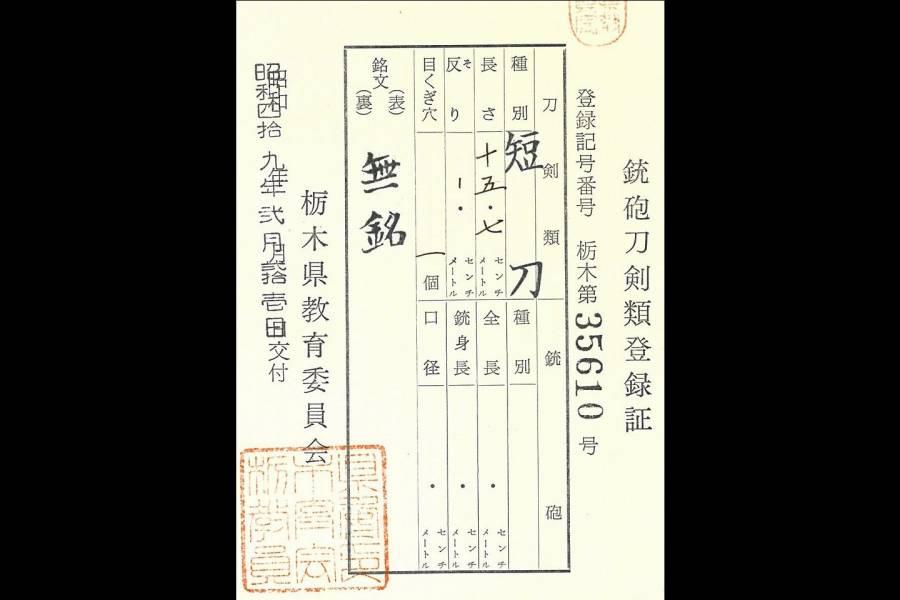 銃砲刀剣類登録証
登録記号番号 栃木第35610号
刀剣類 銃砲
種別 短刀
長さ 十五・七 センチメートル
反り そり 一・ センチメートル
目くぎ穴 一個
銘文 (表) 無銘
(裏)
種別
全長 ・ センチメートル
銃身長 ・ センチメートル
口径 ・ センチメートル
栃木県教育委員会
昭和四拾九年弐月拾壱日交付